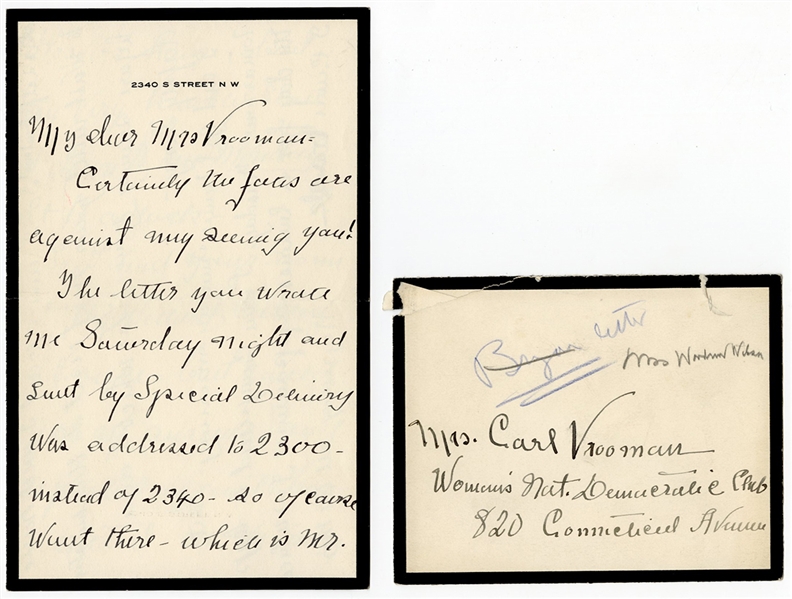 2340 S STREET N W
My dear Mrs Vrooman-
Certainly the fates are
against my seeing you!
The letter you wrote
me Saturday night and
sent by Special Delivery
was addressed to 2300-
instead of 2340- so of course
went there- which is Mr.
Bryan letter
Mrs Woodrow Wilson
Mrs. Carl Vrooman
Woman's Nat. Democratic Club
820 Connecticut Avenue